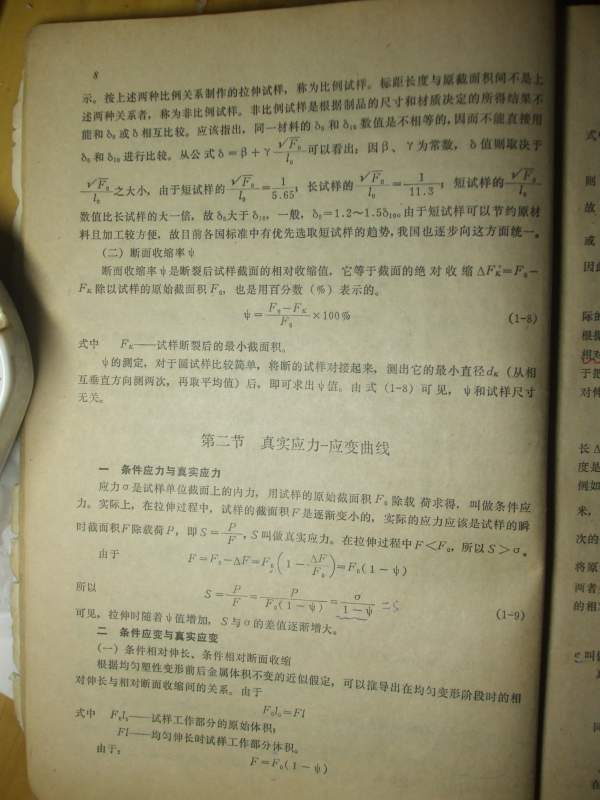 8
示。按上述两种比例关系制作的拉伸试样，称为比例试样。标距长度与原截面积间不是上
述两种关系者，称为非比例试样。非比例试样是根据制品的尺寸和材质决定的所得结果不
能和δ₅或δ相互比较。应该指出，同一材料的δ₅和δ₁₀数值是不相等的，因而不能直接用
δ₅和δ₁₀进行比较。从公式δ=β+γ√F₀/l₀可以看出：因β、γ为常数，δ值则取决于
√F₀/l₀之大小，由于短试样的√F₀/l₀=1/5.65；长试样的√F₀/l₀=1/11.3；短试样的√F₀/l₀
数值比长试样的大一倍，故δ₅大于δ₁₀，一般，δ₅=1.2～1.5δ₁₀。由于短试样可以节约原材
料且加工较方便，故目前各国标准中有优先选取短试样的趋势，我国也逐步向这方面统一。
（二）断面收缩率ψ
断面收缩率ψ是断裂后试样截面的相对收缩值，它等于截面的绝对收缩ΔF_K=F₀-
F_K除以试样的原始截面积F₀，也是用百分数（%）表示的。
ψ=(F₀-F_K)/F₀×100%　(1-8)
式中　F_K——试样断裂后的最小截面积。
ψ的测定，对于圆试样比较简单，将断的试样对接起来，测出它的最小直径d_K（从相
互垂直方向测两次，再取平均值）后，即可求出ψ值。由式（1-8）可见，ψ和试样尺寸
无关。
第二节　真实应力-应变曲线
一　条件应力与真实应力
应力σ是试样单位截面上的内力，用试样的原始截面积F₀除载荷求得，叫做条件应
力。实际上，在拉伸过程中，试样的截面积F是逐渐变小的，实际的应力应该是试样的瞬
时截面积F除载荷P，即S=P/F，S叫做真实应力。在拉伸过程中F<F₀，所以S>σ。
由于　F=F₀-ΔF=F₀(1-ΔF/F₀)=F₀(1-ψ)
所以　S=P/F=P/F₀(1-ψ)=σ/(1-ψ) =S　(1-9)
可见，拉伸时随着ψ值增加，S与σ的差值逐渐增大。
二　条件应变与真实应变
（一）条件相对伸长、条件相对断面收缩
根据均匀塑性变形前后金属体积不变的近似假定，可以推导出在均匀变形阶段时的相
对伸长与相对断面收缩间的关系。由于
F₀l₀=Fl
式中　F₀l₀——试样工作部分的原始体积；
Fl——均匀伸长时试样工作部分体积。
由于：
F=F₀(1-ψ)
式中
则
故
或
因此
际的
根据
相对
于把
对伸
长Δ
度是
例如
米，
次的
将原
两者
的相
e叫做
在